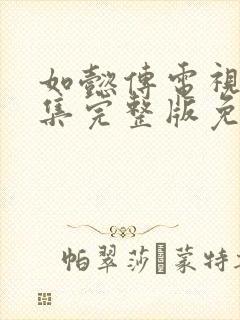 如懿傳電視
集完整版免
帕翠莎蒙特